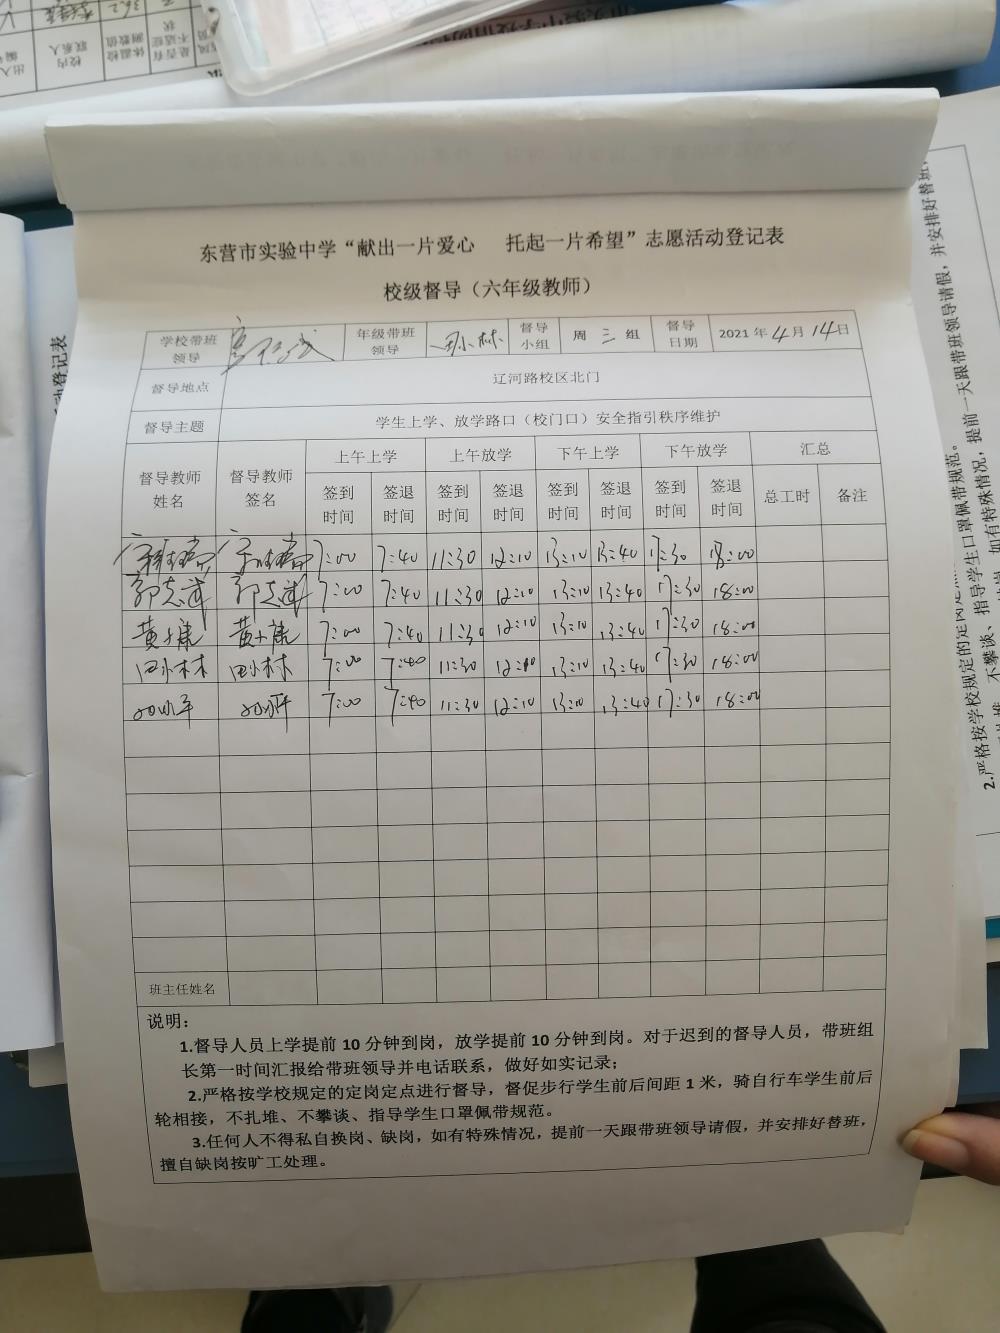 东营市实验中学“献出一片爱心 托起一片希望”志愿活动登记表
校级督导（六年级教师）
学校带班领导 年级带班领导 督导小组 周三组 督导日期 2021年4月14日
督导地点 辽河路校区北门
督导主题 学生上学、放学路口（校门口）安全指引秩序维护
督导教师姓名 督导教师签名 上午上学 上午放学 下午上学 下午放学 汇总
签到时间 签退时间 签到时间 签退时间 签到时间 签退时间 签到时间 签退时间 总工时 备注
7:00 7:40 11:30 12:10 13:10 13:40 17:30 18:00
郭志斌 郭志斌 7:00 7:40 11:30 12:10 13:10 13:40 17:30 18:00
黄 黄 7:00 7:40 11:30 12:10 13:10 13:40 17:30 18:00
田小林 田小林 7:00 7:40 11:30 12:10 13:10 13:40 17:30 18:00
7:00 7:40 11:30 12:10 13:10 13:40 17:30 18:00
班主任姓名
说明：
1.督导人员上学提前10分钟到岗，放学提前10分钟到岗。对于迟到的督导人员，带班组
长第一时间汇报给带班领导并电话联系，做好如实记录；
2.严格按学校规定的定岗定点进行督导，督促步行学生前后间距1米，骑自行车学生前后
轮相接，不扎堆、不攀谈、指导学生口罩佩带规范。
3.任何人不得私自换岗、缺岗，如有特殊情况，提前一天跟带班领导请假，并安排好替班，
擅自缺岗按旷工处理。